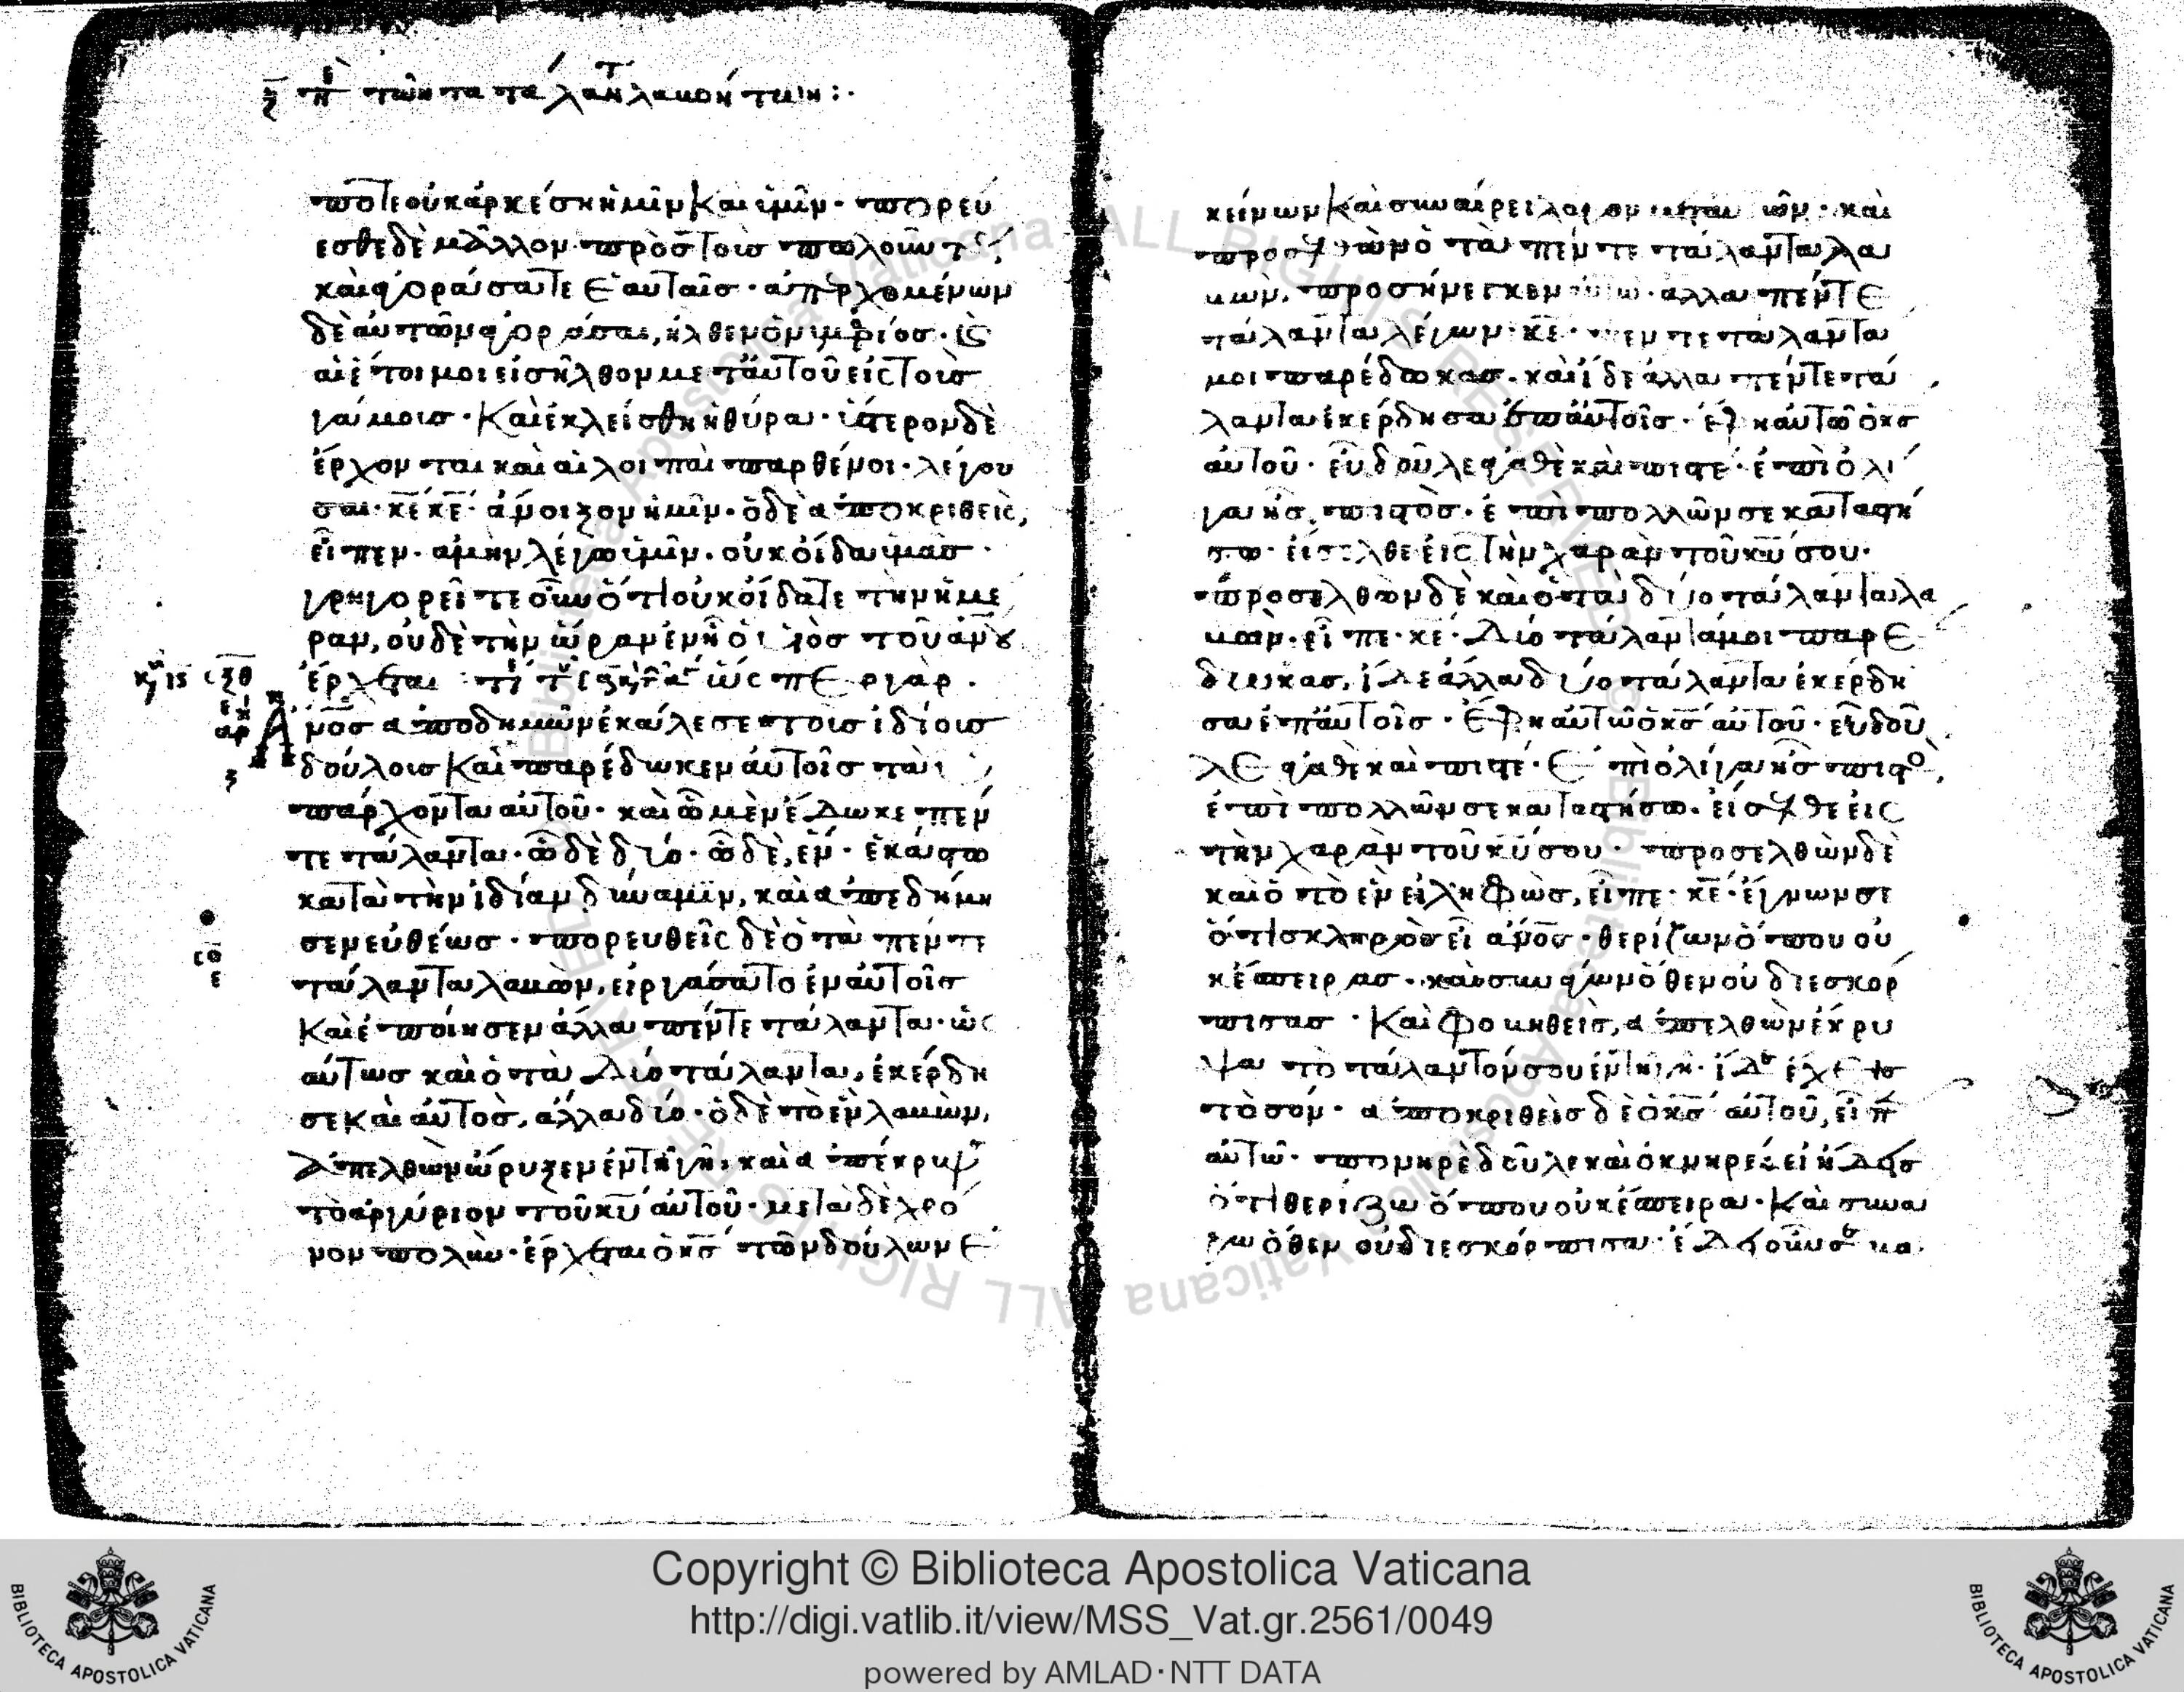 ξ πε τῶν τὰ τάλαντ λαβόντων :·
ποτε οὐκ ἀρκέση ἡμῖν και ὑμῖν· πορευ
εσθε δὲ μᾶλλον πρὸς τοις πωλοῦντ
καὶ ἀγοράσατε ἑαυταῖς· ἀπερχομένων
δὲ αὐτῶν ἀγοράσαι, ἦλθεν ὁ νυμφίος· κ
αἱ ἕτοιμοι εἰσῆλθον μετ αὐτοῦ εἰς τοὺς
γάμους· Καὶ ἐκλείσθη ἡ θύρα· ὕστερον δὲ
ἔρχονται καὶ αἱ λοιπαὶ παρθένοι· λέγου
σαι· κε κε· ἄνοιξον ἡμῖν· ὁ δὲ ἀποκριθεὶς,
εἶπεν· ἀμὴν λέγω ὑμῖν· οὐκ οἶδα ὑμᾶς·
γρηγορεῖτε οὖν ὅτι οὐκ οἴδατε τὴν ἡμέ
ραν, οὐδὲ τὴν ὥραν ἐν ἧ ὁ υἱὸς τοῦ ἀνου
ἔρχεται ὥσπερ γὰρ·
ανος ἀποδημῶν ἐκάλεσε τοὺς ἰδίους
δούλους Καὶ παρέδωκεν αὐτοῖς τὰ ὑ
πάρχοντα αὐτοῦ· καὶ ὧ μὲν ἔδωκε πέν
τε τάλαντα· ὧ δὲ δύο· ὧ δὲ, ἕν· ἑκάστω
κατὰ τὴν ἰδίαν δύναμιν, καὶ ἀπεδήμη
σεν εὐθέως· πορευθεὶς δὲ ὁ τὰ πέντε
τάλαντα λαβὼν, εἰργάσατο ἐν αὐτοῖς
Καὶ ἐποίησεν ἄλλα πέντε τάλαντα· ὡς
αύτως καὶ ὁ τὰ δύο τάλαντα, ἐκέρδη
σε καὶ αὐτὸς, ἄλλα δύο· ὁ δὲ τὸ ἓν λαβὼν,
ἀπελθὼν ὤρυξεν ἐν τῆ γῆ, καὶ ἀπέκρυψ
τὸ ἀργύριον τοῦ κυ αὐτοῦ· μετὰ δὲ χρό
νον πολὺν· ἔρχεται ὁ κς τῶν δούλων ἐ
κείνων Καὶ συναίρει λόγον μετ αὐτῶν· καὶ
προσελθὼν ὁ τὰ πέντε τάλαντα λα
βὼν, προσήνεγκεν αὐτῶ· ἄλλα πέντε
τάλαντα λέγων· κε· πέντε τάλαντα
μοι παρέδωκας· καὶ ἴδε ἄλλα πέντε τά
λαντα ἐκέρδησα ἐπ αὐτοῖς· ἔφη αὐτῶ ὁ κς
αὐτοῦ· εὖ δοῦλε ἀγαθὲ καὶ πιστέ· ἐπὶ ὀλί
γα ἦς πιστὸς· ἐπὶ πολλῶν σε καταστή
σω· εἴσελθε εἰς τὴν χαρὰν τοῦ κυ σου·
προσελθὼν δὲ καὶ ὁ τὰ δύο τάλαντα λα
βὼν· εἶπε· κε· δύο τάλαντά μοι παρέ
δωκας, ἴδε ἄλλα δύο τάλαντα ἐκέρδη
σα ἐπ αὐτοῖς· Ἔφη αὐτῶ ὁ κς αὐτοῦ· εὖ δοῦ
λε ἀγαθὲ καὶ πιστέ· ἐπὶ ὀλίγα ἦς πιστὸ,
ἐπὶ πολλῶν σε καταστήσω· εἴσελθε εἰς
τὴν χαρὰν τοῦ κυ σου· προσελθὼν δὲ
καὶ ὁ τὸ ἓν εἰληφὼς, εἶπε· κε· ἔγνων σε
ὅτι σκληρὸς εἶ ανος· θερίζων ὅπου οὐ
κ ἔσπειρας· καὶ συνάγων ὅθεν οὐ διεσκόρ
πισας· Καὶ φοβηθεὶς, ἀπελθὼν ἔκρυ
ψα τὸ τάλαντόν σου ἐν τῆ γῆ· ἴδου ἔχεις
τὸ σόν· ἀποκριθεὶς δὲ ὁ κς αὐτοῦ, εἶπ
αὐτῶ· πονηρὲ δοῦλε καὶ ὀκνηρέ· εἰ ἤδης
ὅτι θερίζω ὅπου οὐκ ἔσπειρα· Καὶ συνά
γω ὅθεν οὐ διεσκόρπισα· ἔδει οὖν σου βα
Copyright © Biblioteca Apostolica Vaticana
http://digi.vatlib.it/view/MSS_Vat.gr.2561/0049
powered by AMLAD·NTT DATA
BIBLIOTECA APOSTOLICA VATICANA
BIBLIOTECA APOSTOLICA VATICANA